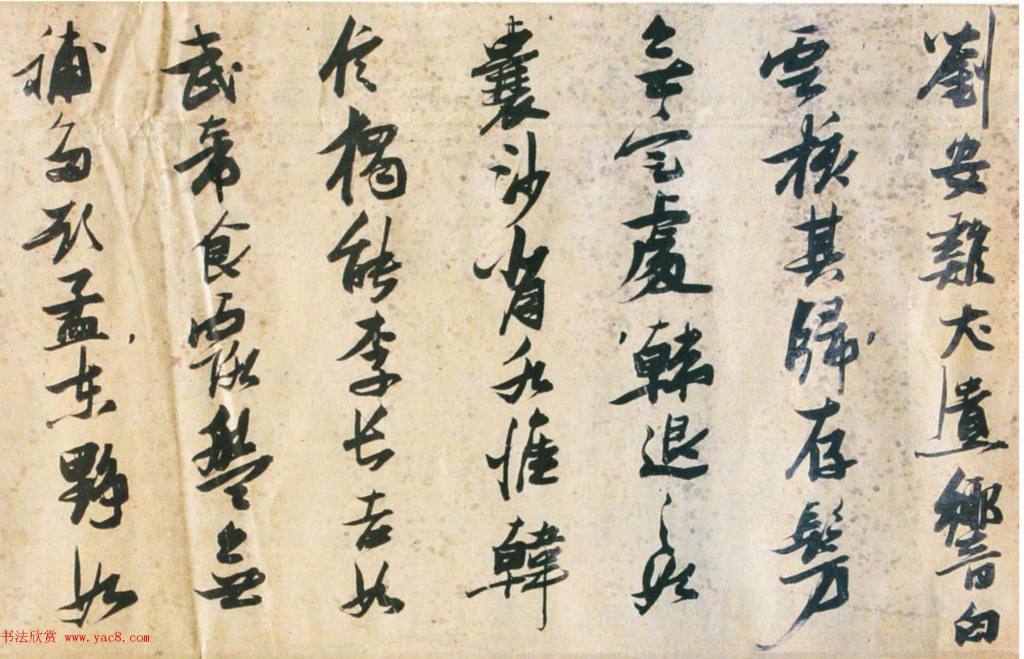 劉安雞犬遺響白
雲核其歸存髣
無定處韓退之如
囊沙背水惟韓
信獨能李長吉如
武帝食露盤無
補多欲孟東野如
书法欣赏 www.yac8.com